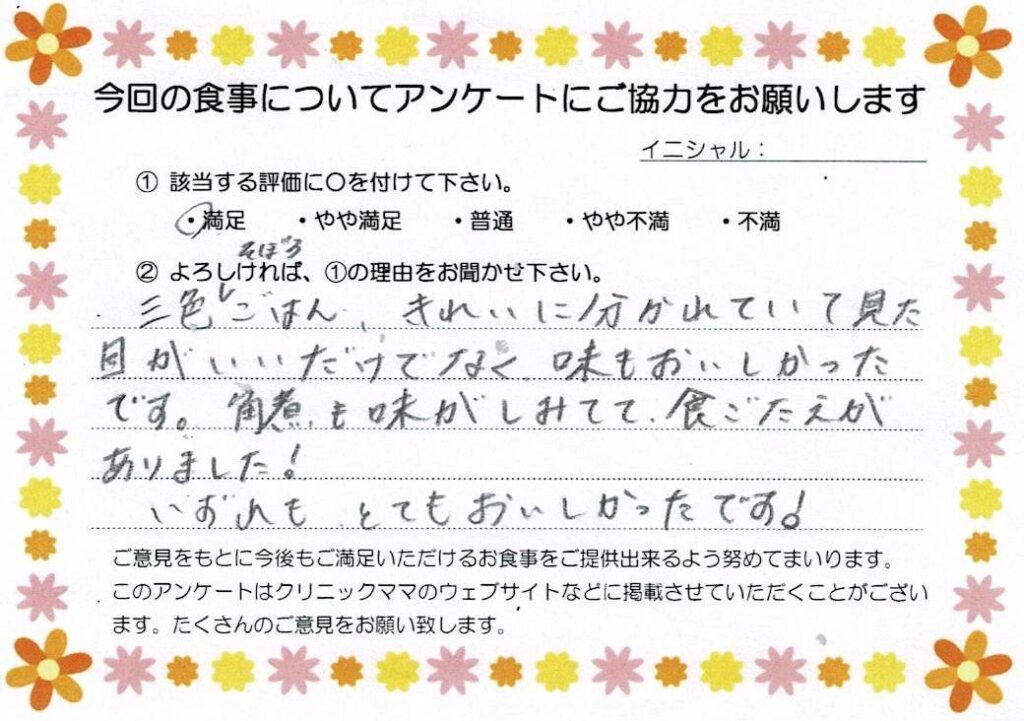 今回の食事についてアンケートにご協力をお願いします
イニシャル：
① 該当する評価に〇を付けて下さい。
・満足　・やや満足　・普通　・やや不満　・不満
② よろしければ、①の理由をお聞かせ下さい。
そぼろ
三色ごはん、きれいに分かれていて見た
目がいいだけでなく、味もおいしかった
です。角煮も味がしみてて、食ごたえが
ありました！
いずれも、とてもおいしかったです！
ご意見をもとに今後もご満足いただけるお食事をご提供出来るよう努めてまいります。
このアンケートはクリニックママのウェブサイトなどに掲載させていただくことがござい
ます。たくさんのご意見をお願い致します。